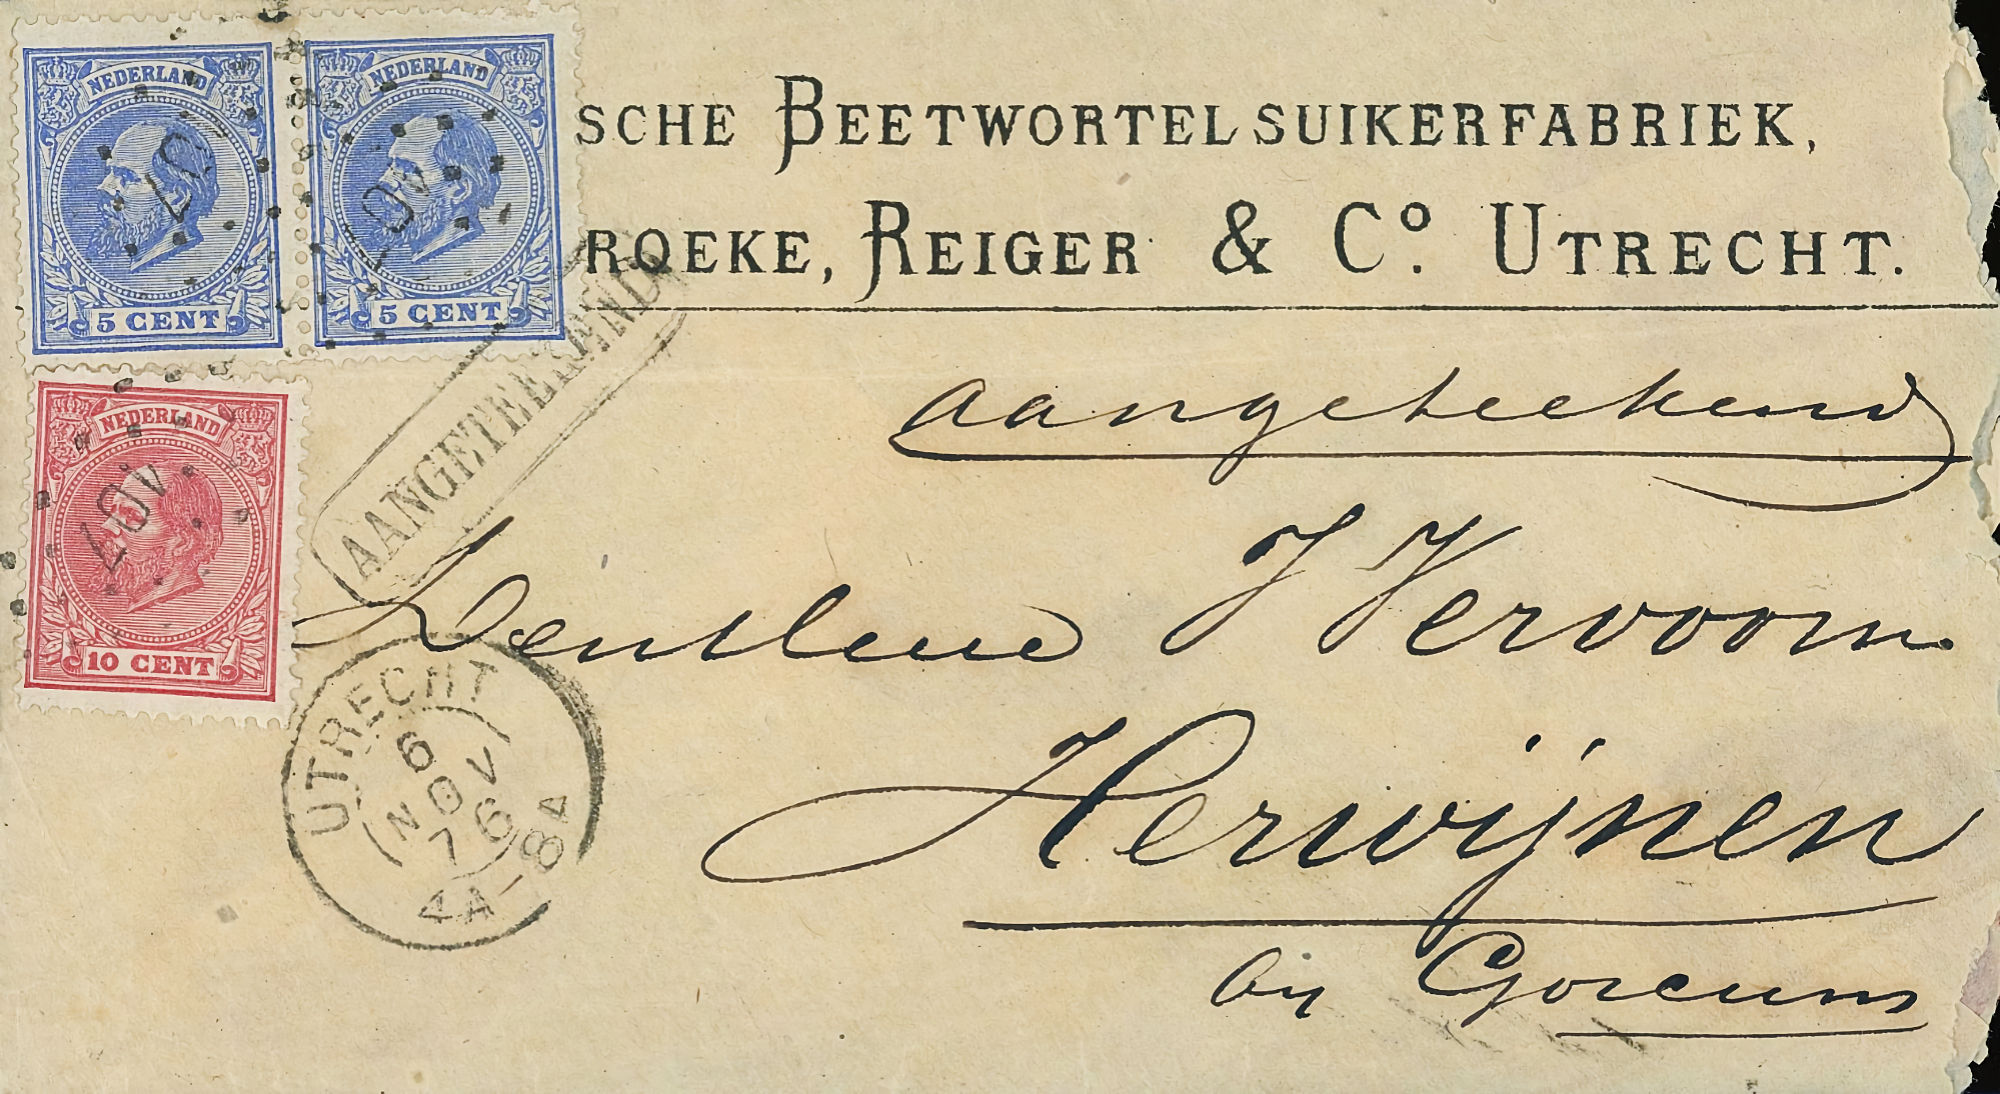 NEDERLAND
5 CENT
NEDERLAND
5 CENT
SCHE BEETWORTELSUIKERFABRIEK,
ROEKE, REIGER & Co. UTRECHT.
NEDERLAND
10 CENT
107
107
107
AANGETEEKEND
aangeteekend
J Vervoorn
Herwijnen
bij Gorcum
UTRECHT
6
NOV
76
8A